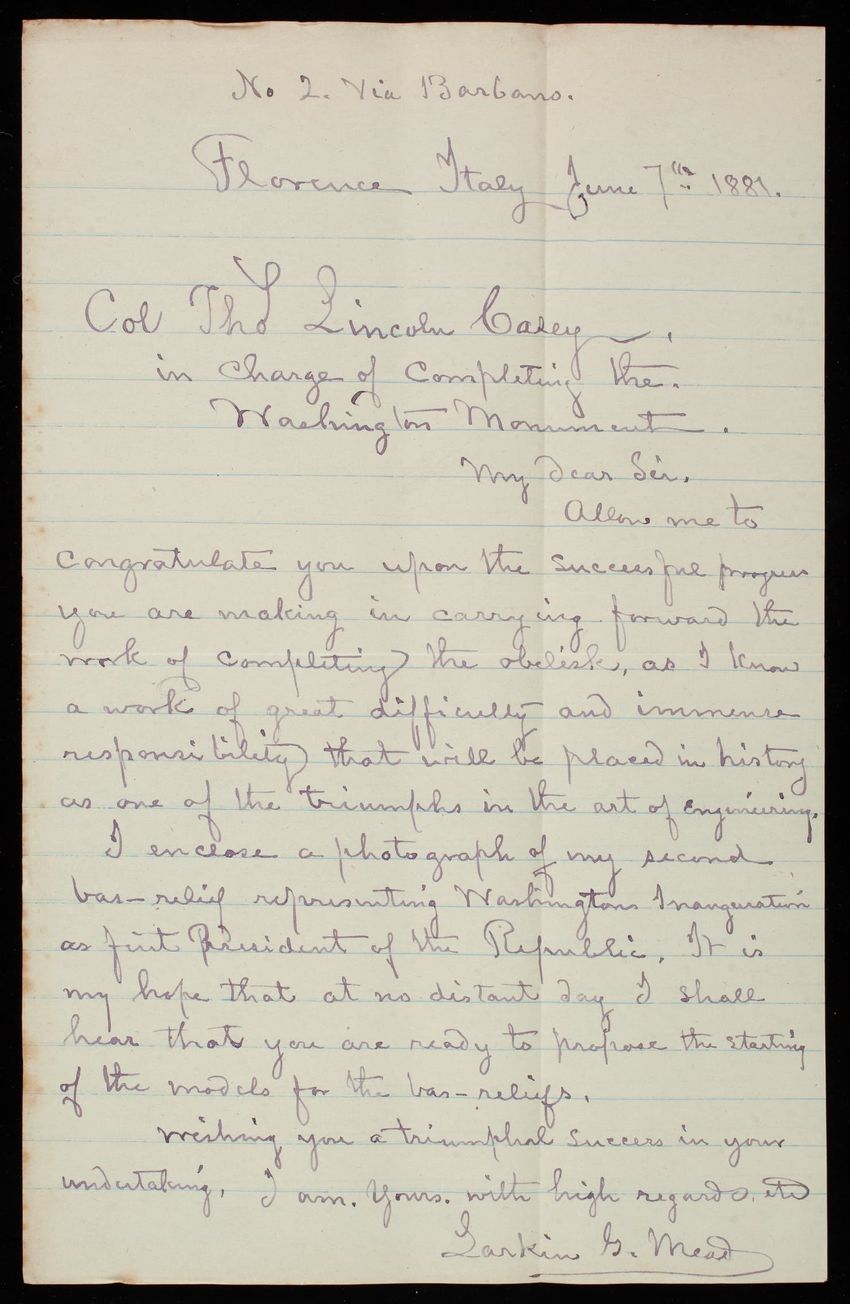 No 2. Via Barbano.
Florence Italy June 7th 1881.
Col Tho Lincoln Casey,
in charge of Completing the.
Washington Monument.
My Dear Sir.
Allow me to
congratulate you upon the successful progress
you are making in carrying forward the
work of completing the obelisk, as I know
a work of great difficulty and immense
responsibility that will be placed in history
as one of the triumphs in the art of engineering.
I enclose a photograph of my second
bas-relief representing Washingtons Inauguration
as first President of the Republic. It is
my hope that at no distant day I shall
hear that you are ready to propose the starting
of the models for the bas-reliefs.
Wishing you a triumphal success in your
undertaking, I am. Yours. with high regards, etc
Larkin G. Mead